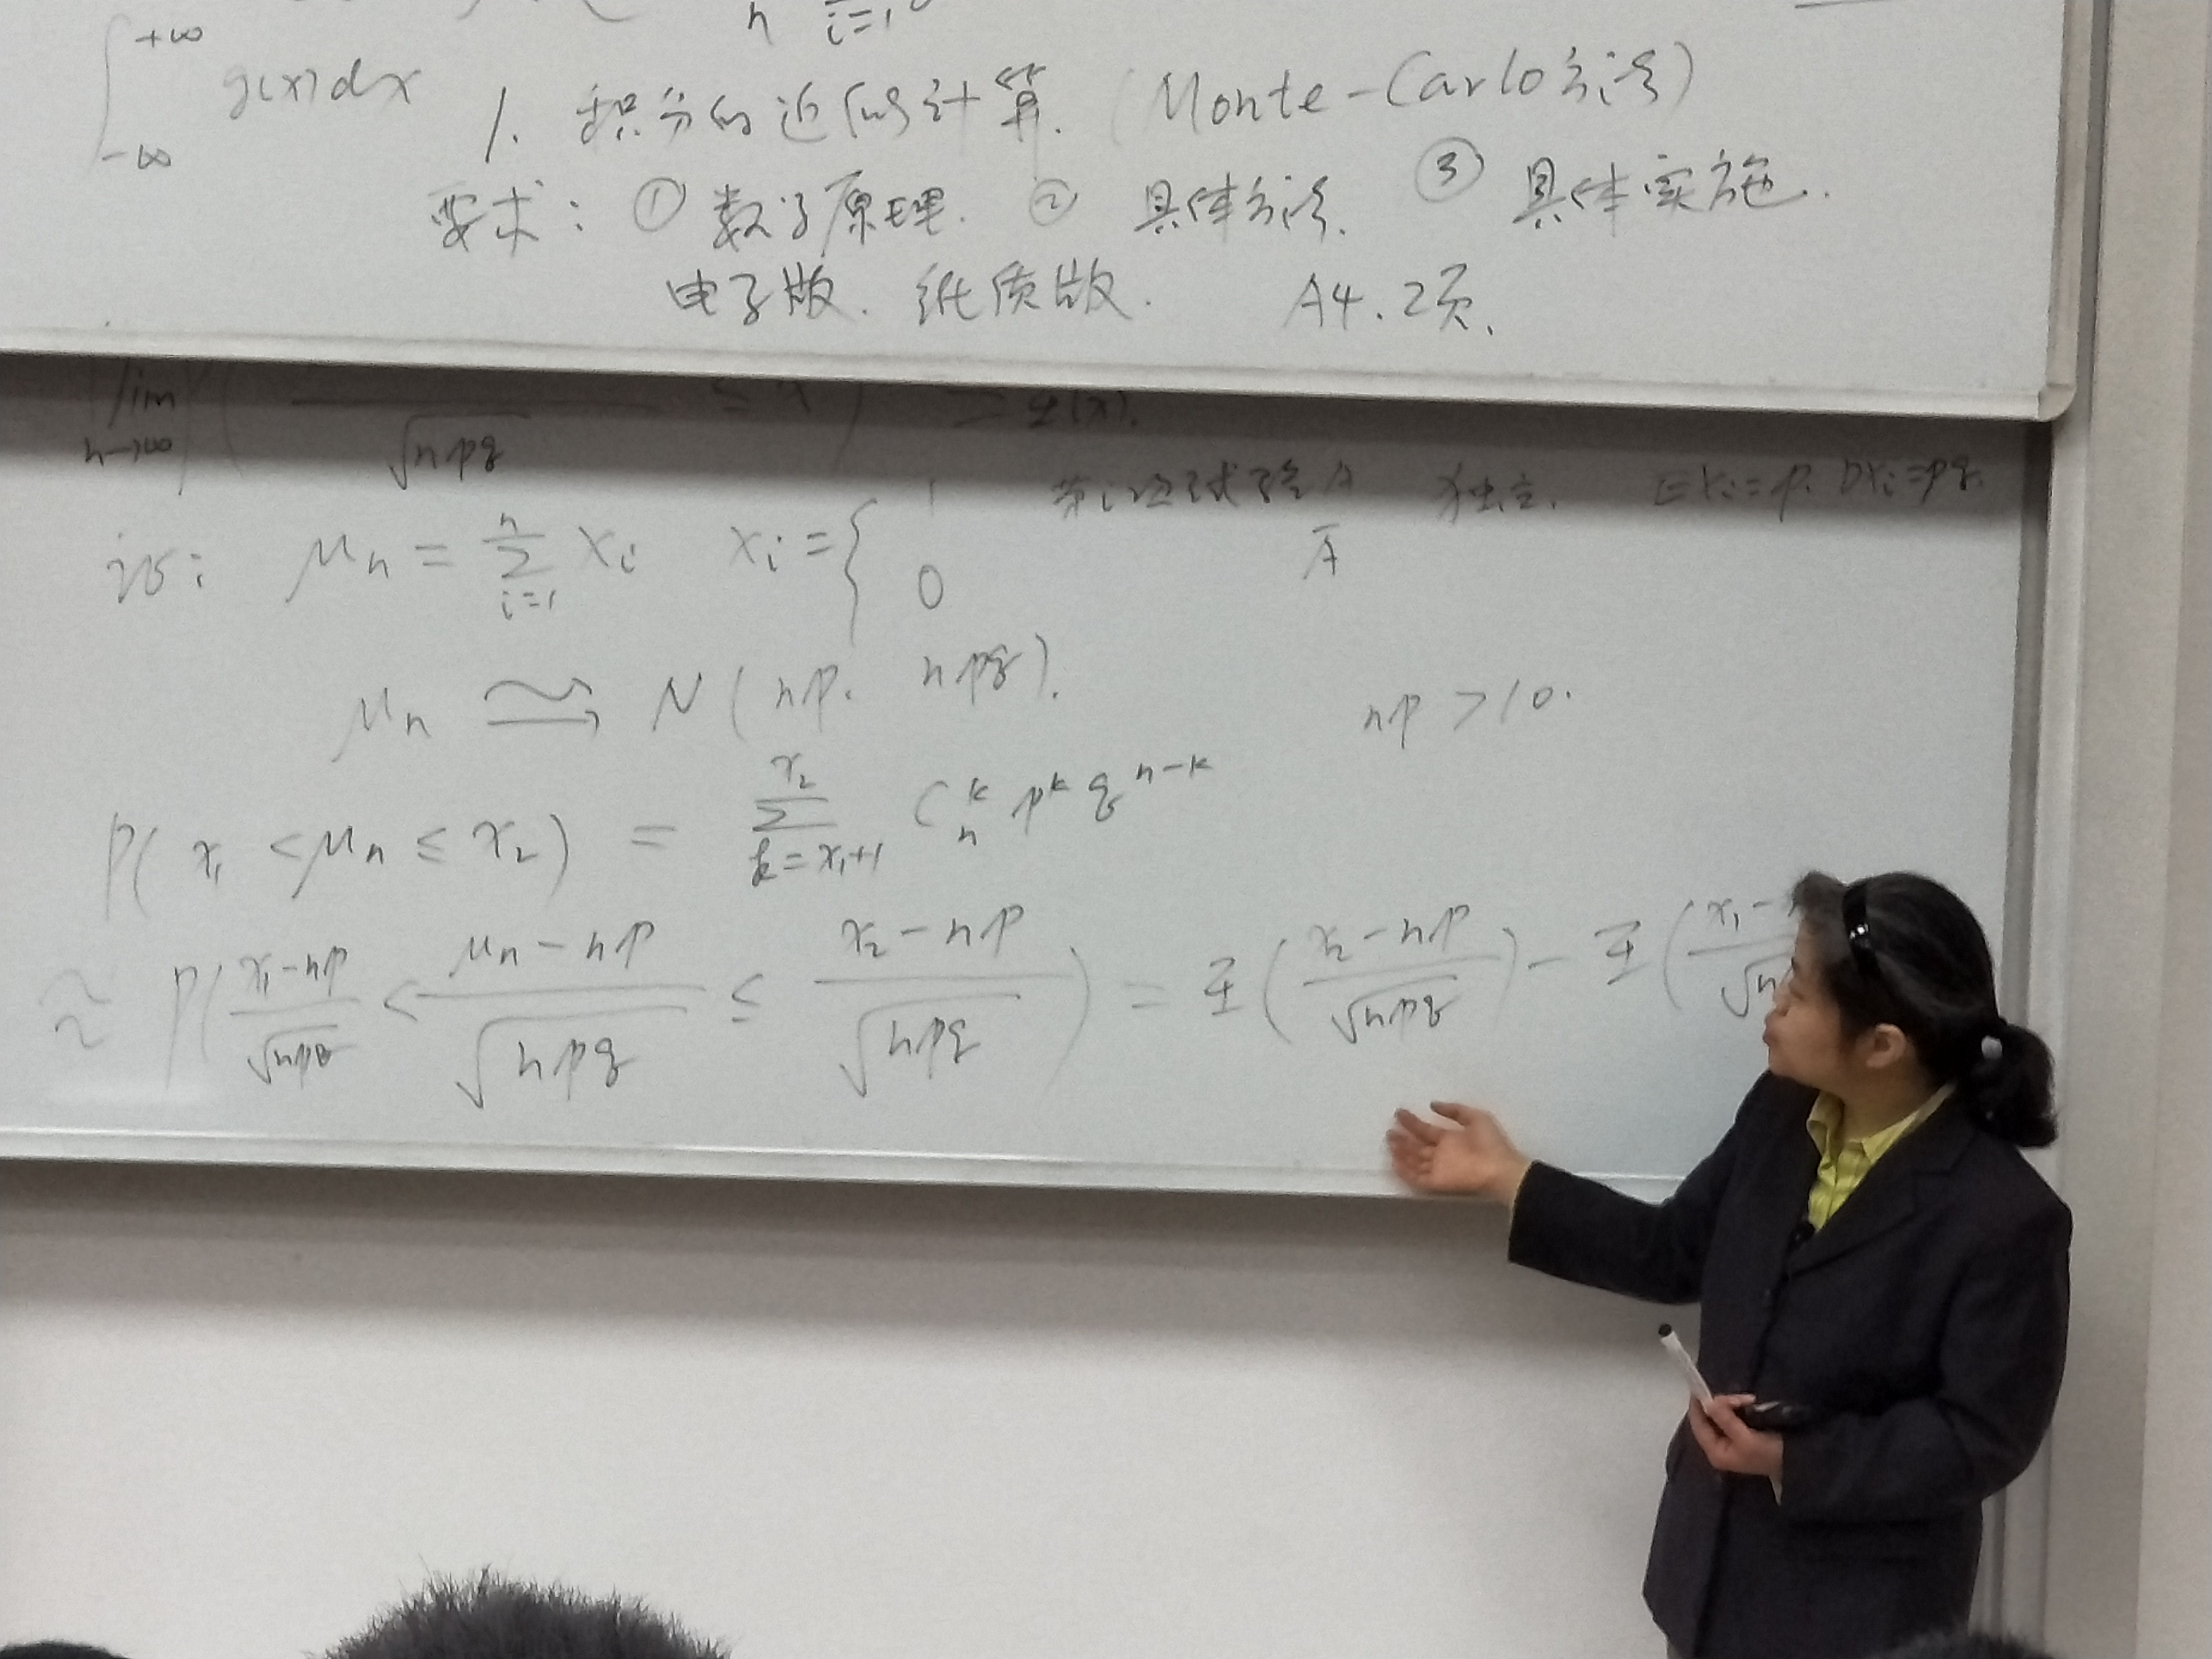 n i=1
∫_{-∞}^{+∞} g(x)dx
1. 积分的近似计算. (Monte-Carlo方法)
要求: ① 数学原理. ② 具体方法. ③ 具体实施.
电子版. 纸质版. A4. 2页.
lim_{n→∞} ( ——/√(npq) ≤ x ) = Φ(x).
证: μn = Σ_{i=1}^{n} Xi Xi = { 1 第i次试验A 独立. EXi=p. DXi=pq.
0 Ā
μn ≃ N(np. npq). np > 10.
P( x₁ < μn ≤ x₂ ) = Σ_{k=x₁+1}^{x₂} C_n^k p^k q^{n-k}
≈ P( (x₁-np)/√(npq) < (μn-np)/√(npq) ≤ (x₂-np)/√(npq) ) = Φ( (x₂-np)/√(npq) ) - Φ( (x₁-